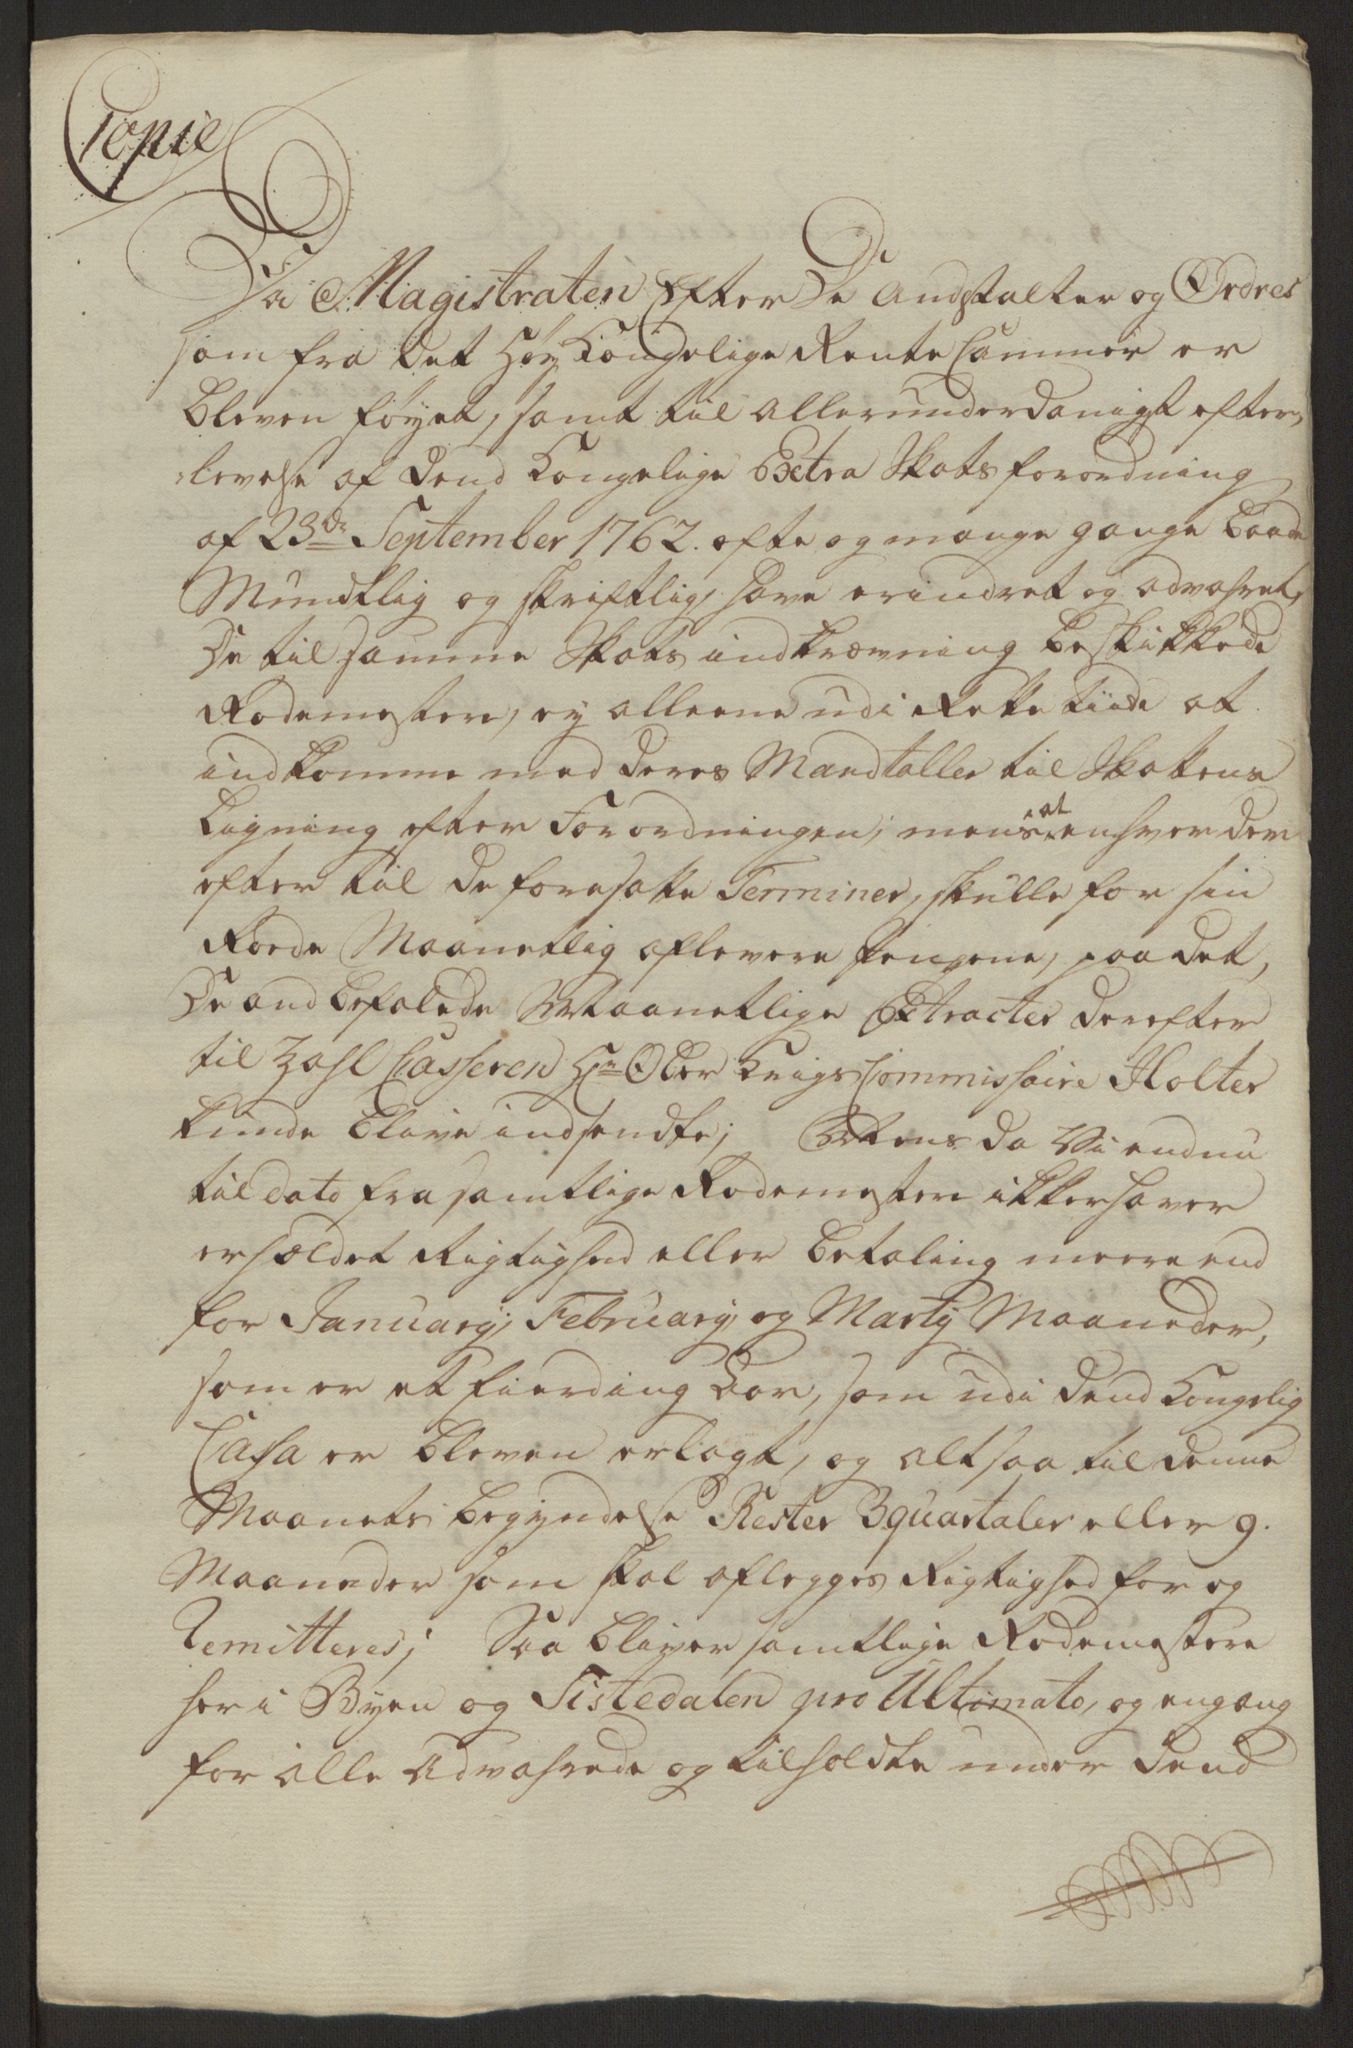 Copie
Da Magistraten Efter De Andstalter og Ordres
som fra Det Høy Kongelige Rente Cammer er
bleven føyet, samt til Allerunderdanigst efter,
levelse af Dend Kongelige Extra Skats forordning
af 23de September 1762. ofte og mange gange baade
Mundtlig og skriftlig, have erindret og advahret,
De til samme Skats indkrævning beskikkede
Rodemestere, ey alleene udi Rette tiide at
indkomme med deres Mandtaller til Skattens
Ligning efter Forordningen; mens at enhver der
efter til de foresatte Terminer, skulle for sin
Roede Maanetlig aflevere pengene, paa det,
De andbefalede Maanetlige Extracter derefter
til Zahl Casseren Hr Ober Krigs Commissaire Holter
kunde blive indsendte; Mens da Vi endnu
til dato fra samtlige Rodemestere ikke haver
erholdet Rigtighed eller betaling meere end
for January, February og Marty Maaneder,
som er et fierding Aar, som udi dend Kongelig
Cassa er bleven erlagt, og altsaa til denne
Maanets begyndelse Rester 3 quartaler eller 9.
Maaneder som skal aflegges Rigtighed for og
Remitteres; Saa bliver samtlige Rodemestere
her i Byen og Tistedalen pro Ultimato, og engang
for alle Advahrede og tilholdte under dend